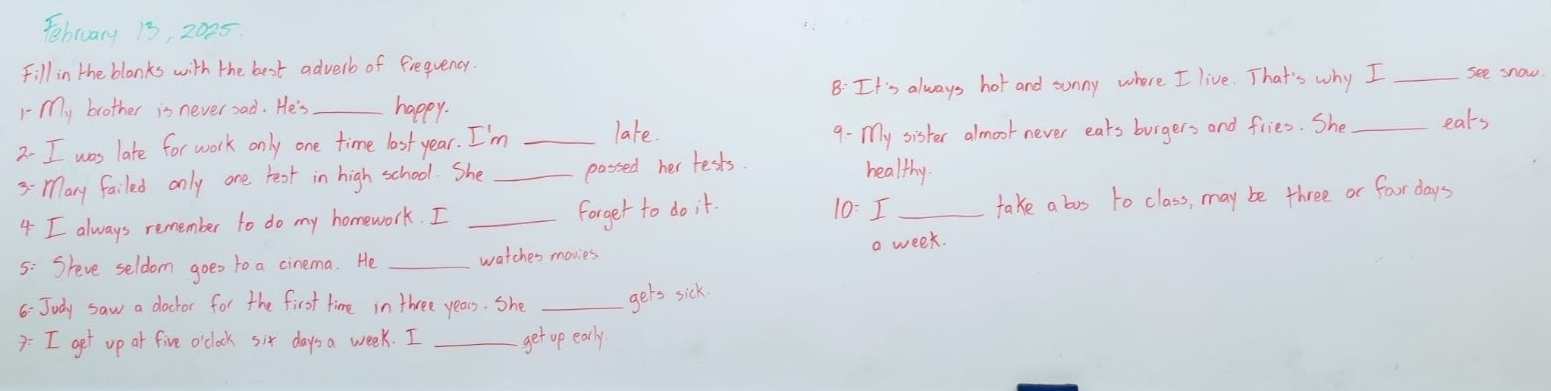 February 13, 2025.
Fill in the blanks with the best adverb of frequency.
1- My brother is never sad. He's ______ happy.
2- I was late for work only one time last year. I'm ______ late.
3- Mary failed only one test in high school. She ______ passed her tests.
4- I always remember to do my homework. I ______ forget to do it.
5- Steve seldom goes to a cinema. He ______ watches movies
6- Judy saw a doctor for the first time in three years. She ______ gets sick.
7- I get up at five o'clock six days a week. I ______ get up early.
8- It's always hot and sunny where I live. That's why I ______ see snow.
9- My sister almost never eats burgers and fries. She ______ eats
healthy.
10- I ______ take a bus to class, may be three or four days
a week.